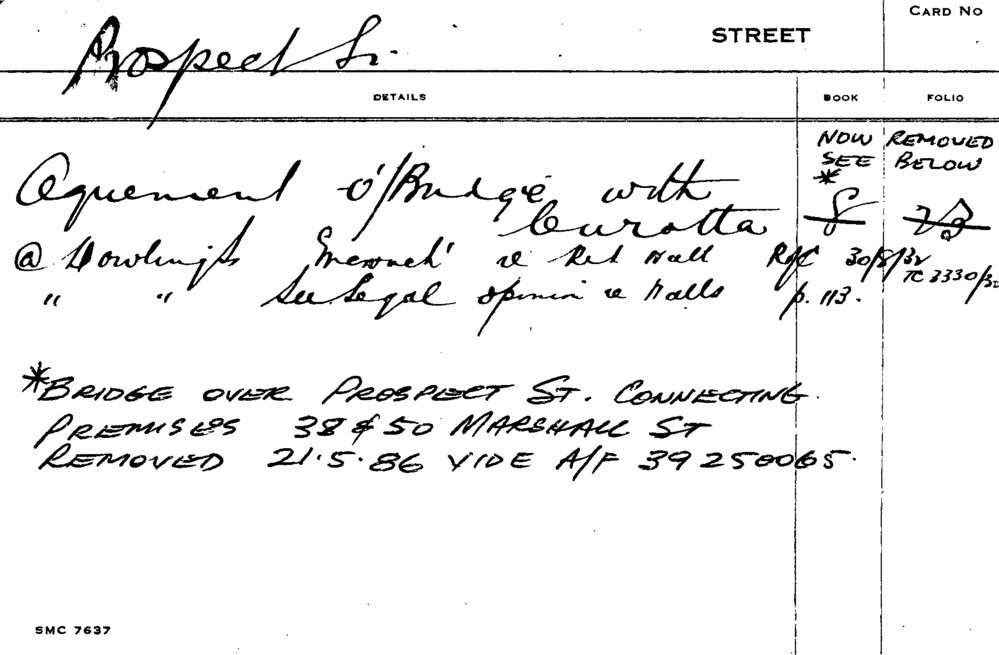 CARD NO
Prospect St. STREET
DETAILS BOOK FOLIO
NOW REMOVED
SEE BELOW
*
Agreement o'/Bridge with
Curotta 8 73
@ Dowling St re Ret Wall R of C 30/8/32
TC 3330/32
" " See Legal opinion re Walls p. 113.
*BRIDGE OVER PROSPECT ST. CONNECTING
PREMISES 38 & 50 MARSHALL ST
REMOVED 21.5.86 VIDE A/F 39250065.
SMC 7637